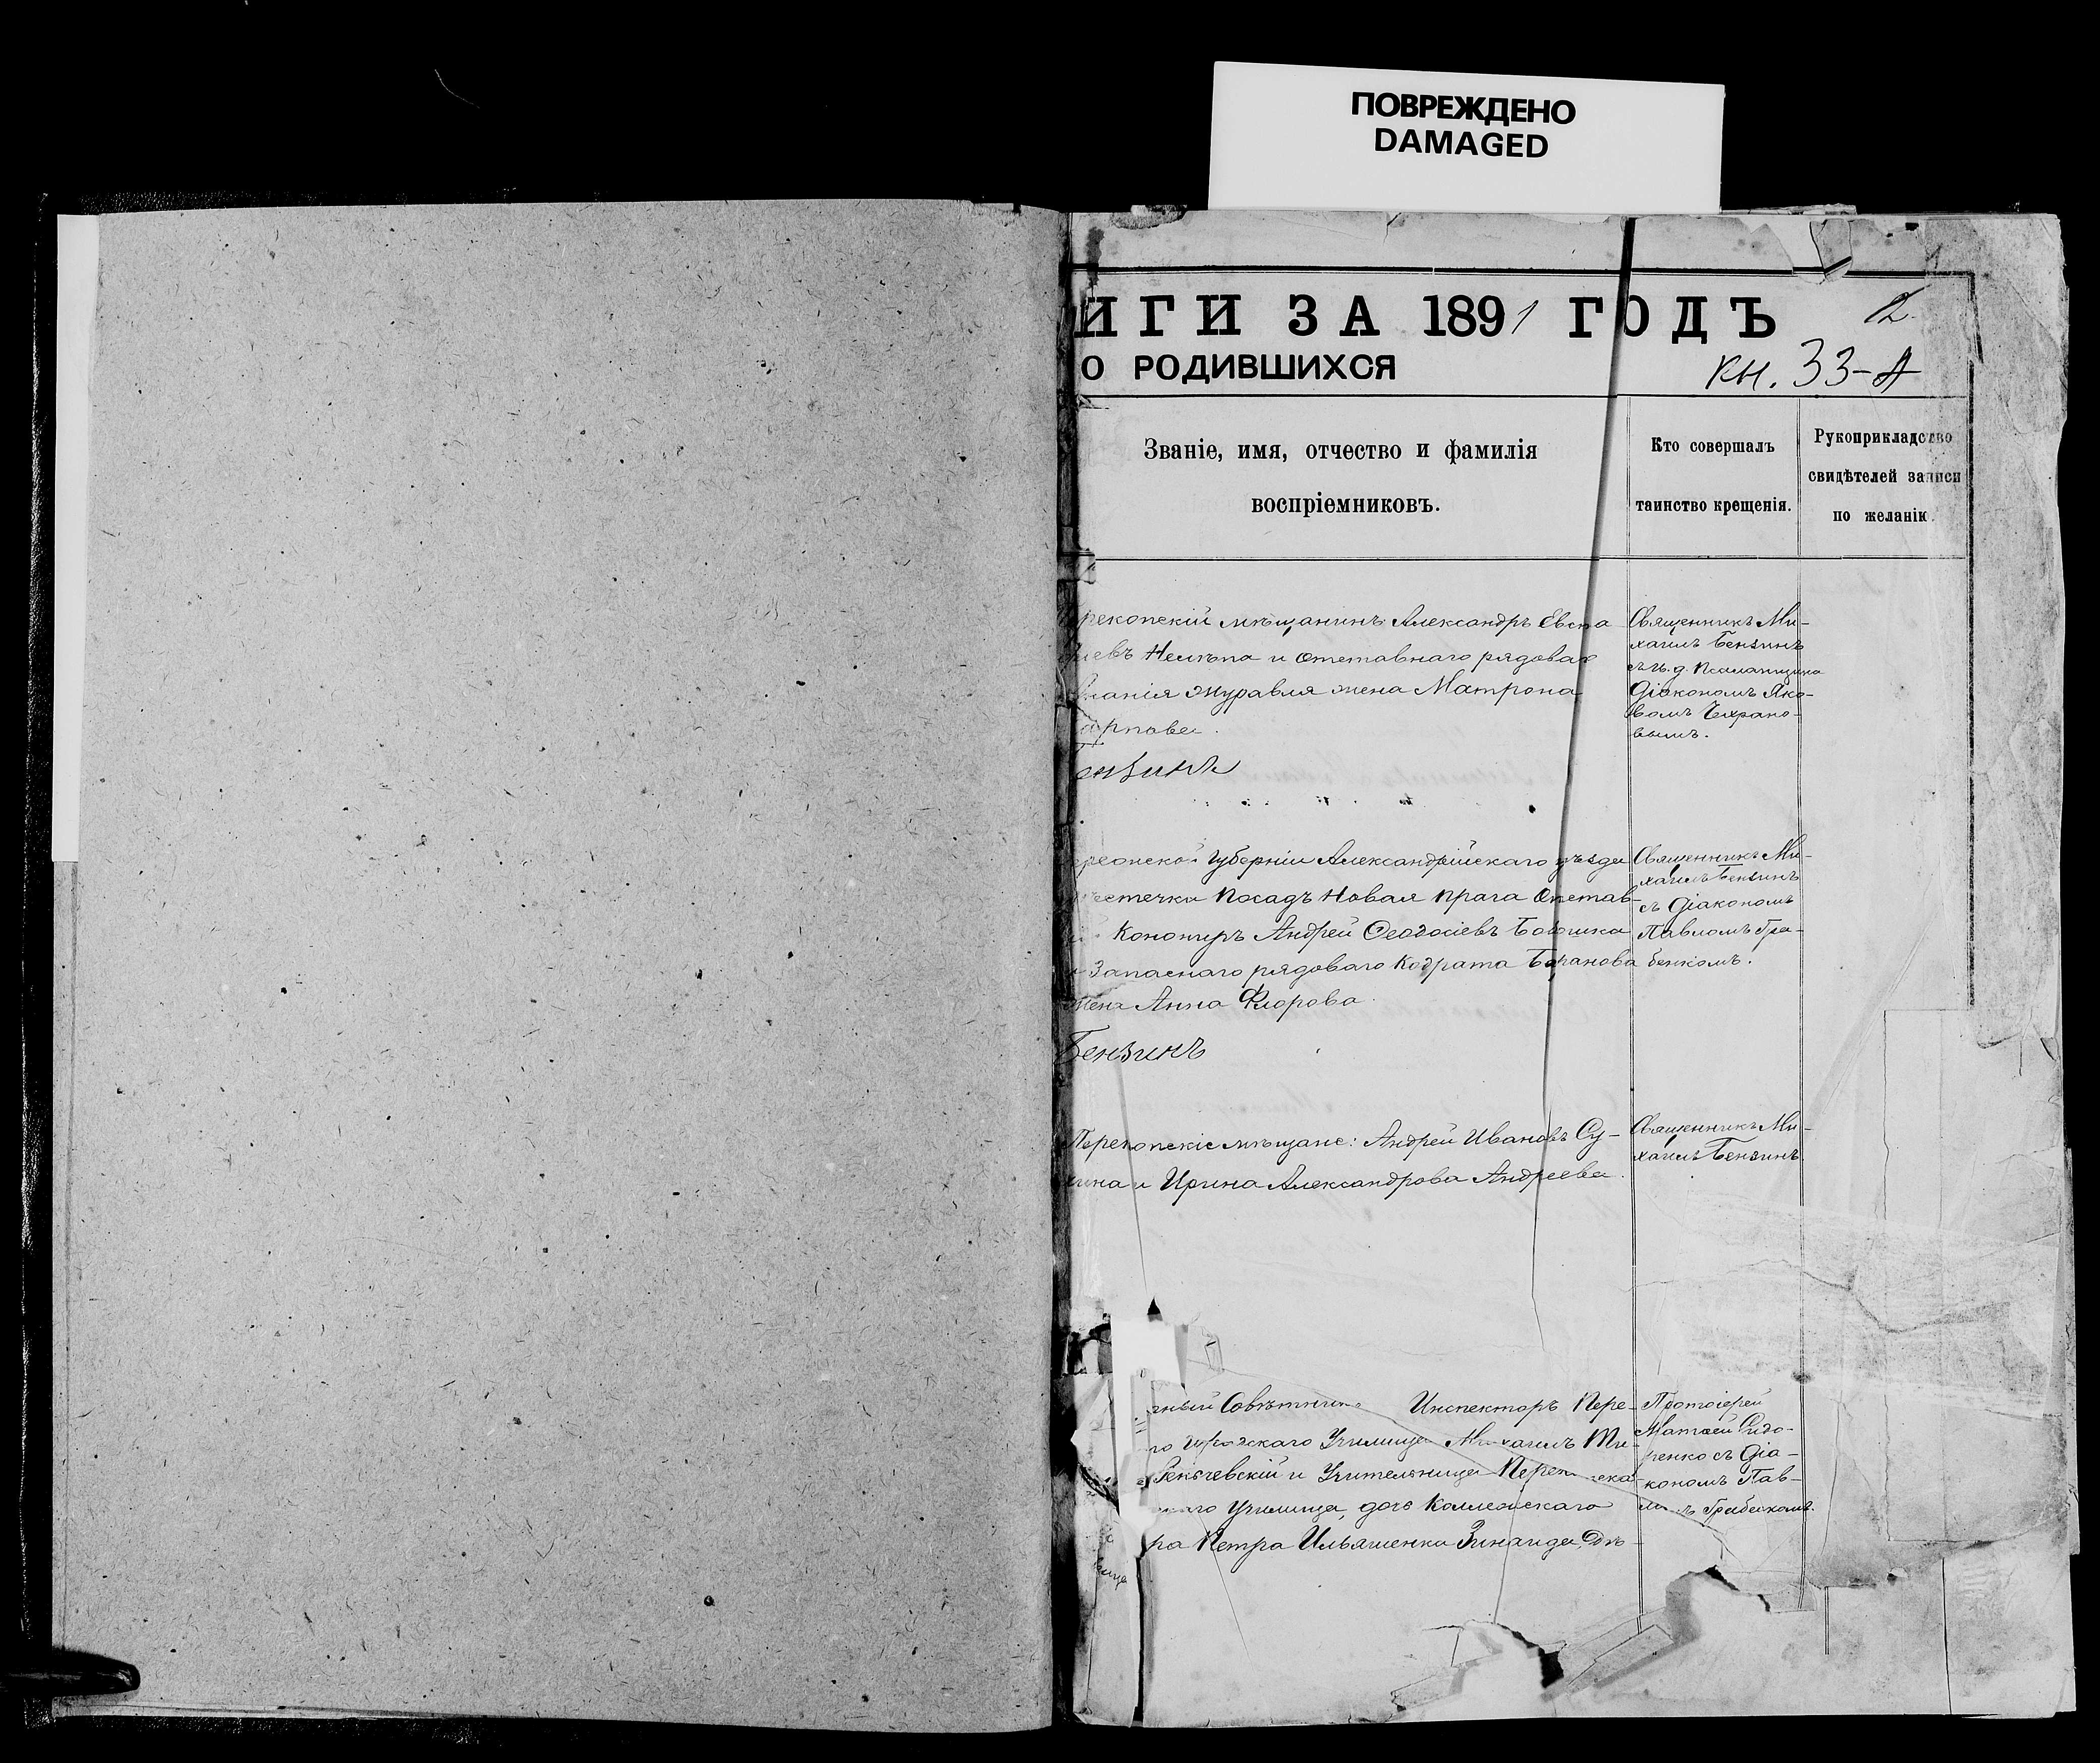 ПОВРЕЖДЕНО
DAMAGED
ИГИ ЗА 1891 ГОДЪ
2.
О РОДИВШИХСЯ
кн. 33-А
Званіе, имя, отчество и фамилія
воспріемниковъ.
Кто совершалъ
таинство крещенія.
Рукоприкладство
свидѣтелей записи
по желанію.
рекопскій мѣщанинъ Александръ Евста
иевъ и отставнаго рядоваго
Журавля жена Матрона
арпова.
ензинъ
Священникъ Ми-
хаилъ Бензинъ
съ и. д. Псаломщика
Діакономъ Яко-
вомъ
вымъ.
ерсонской Губерніи Александрійскаго уѣзда
мѣстечка Посадъ Новая Прага Отстав-
Канониръ Андрей Ѳеодосіевъ
и Запаснаго рядоваго Кодрата Баранова
жена Анна Флорова.
Бензинъ
Священникъ Ми-
хаилъ Бензинъ
съ Діакономъ
Павломъ Гра-
бенкомъ.
Перекопскіе мѣщане: Андрей Ивановъ Су-
хина и Ирина Александрова Андреева.
Священникъ Ми-
хаилъ Бензинъ.
рный Совѣтникъ Инспекторъ Пере-
го Городскаго Училища Михаилъ Ти-
и Учительница
скаго Училища, дочь Коллежскаго
ра Петра Ильяшенка Зинаида Дѣ-
Протоіерей
Матѳей Сидо-
ренко съ Діа-
кономъ Пав-
ломъ Грабенкомъ.